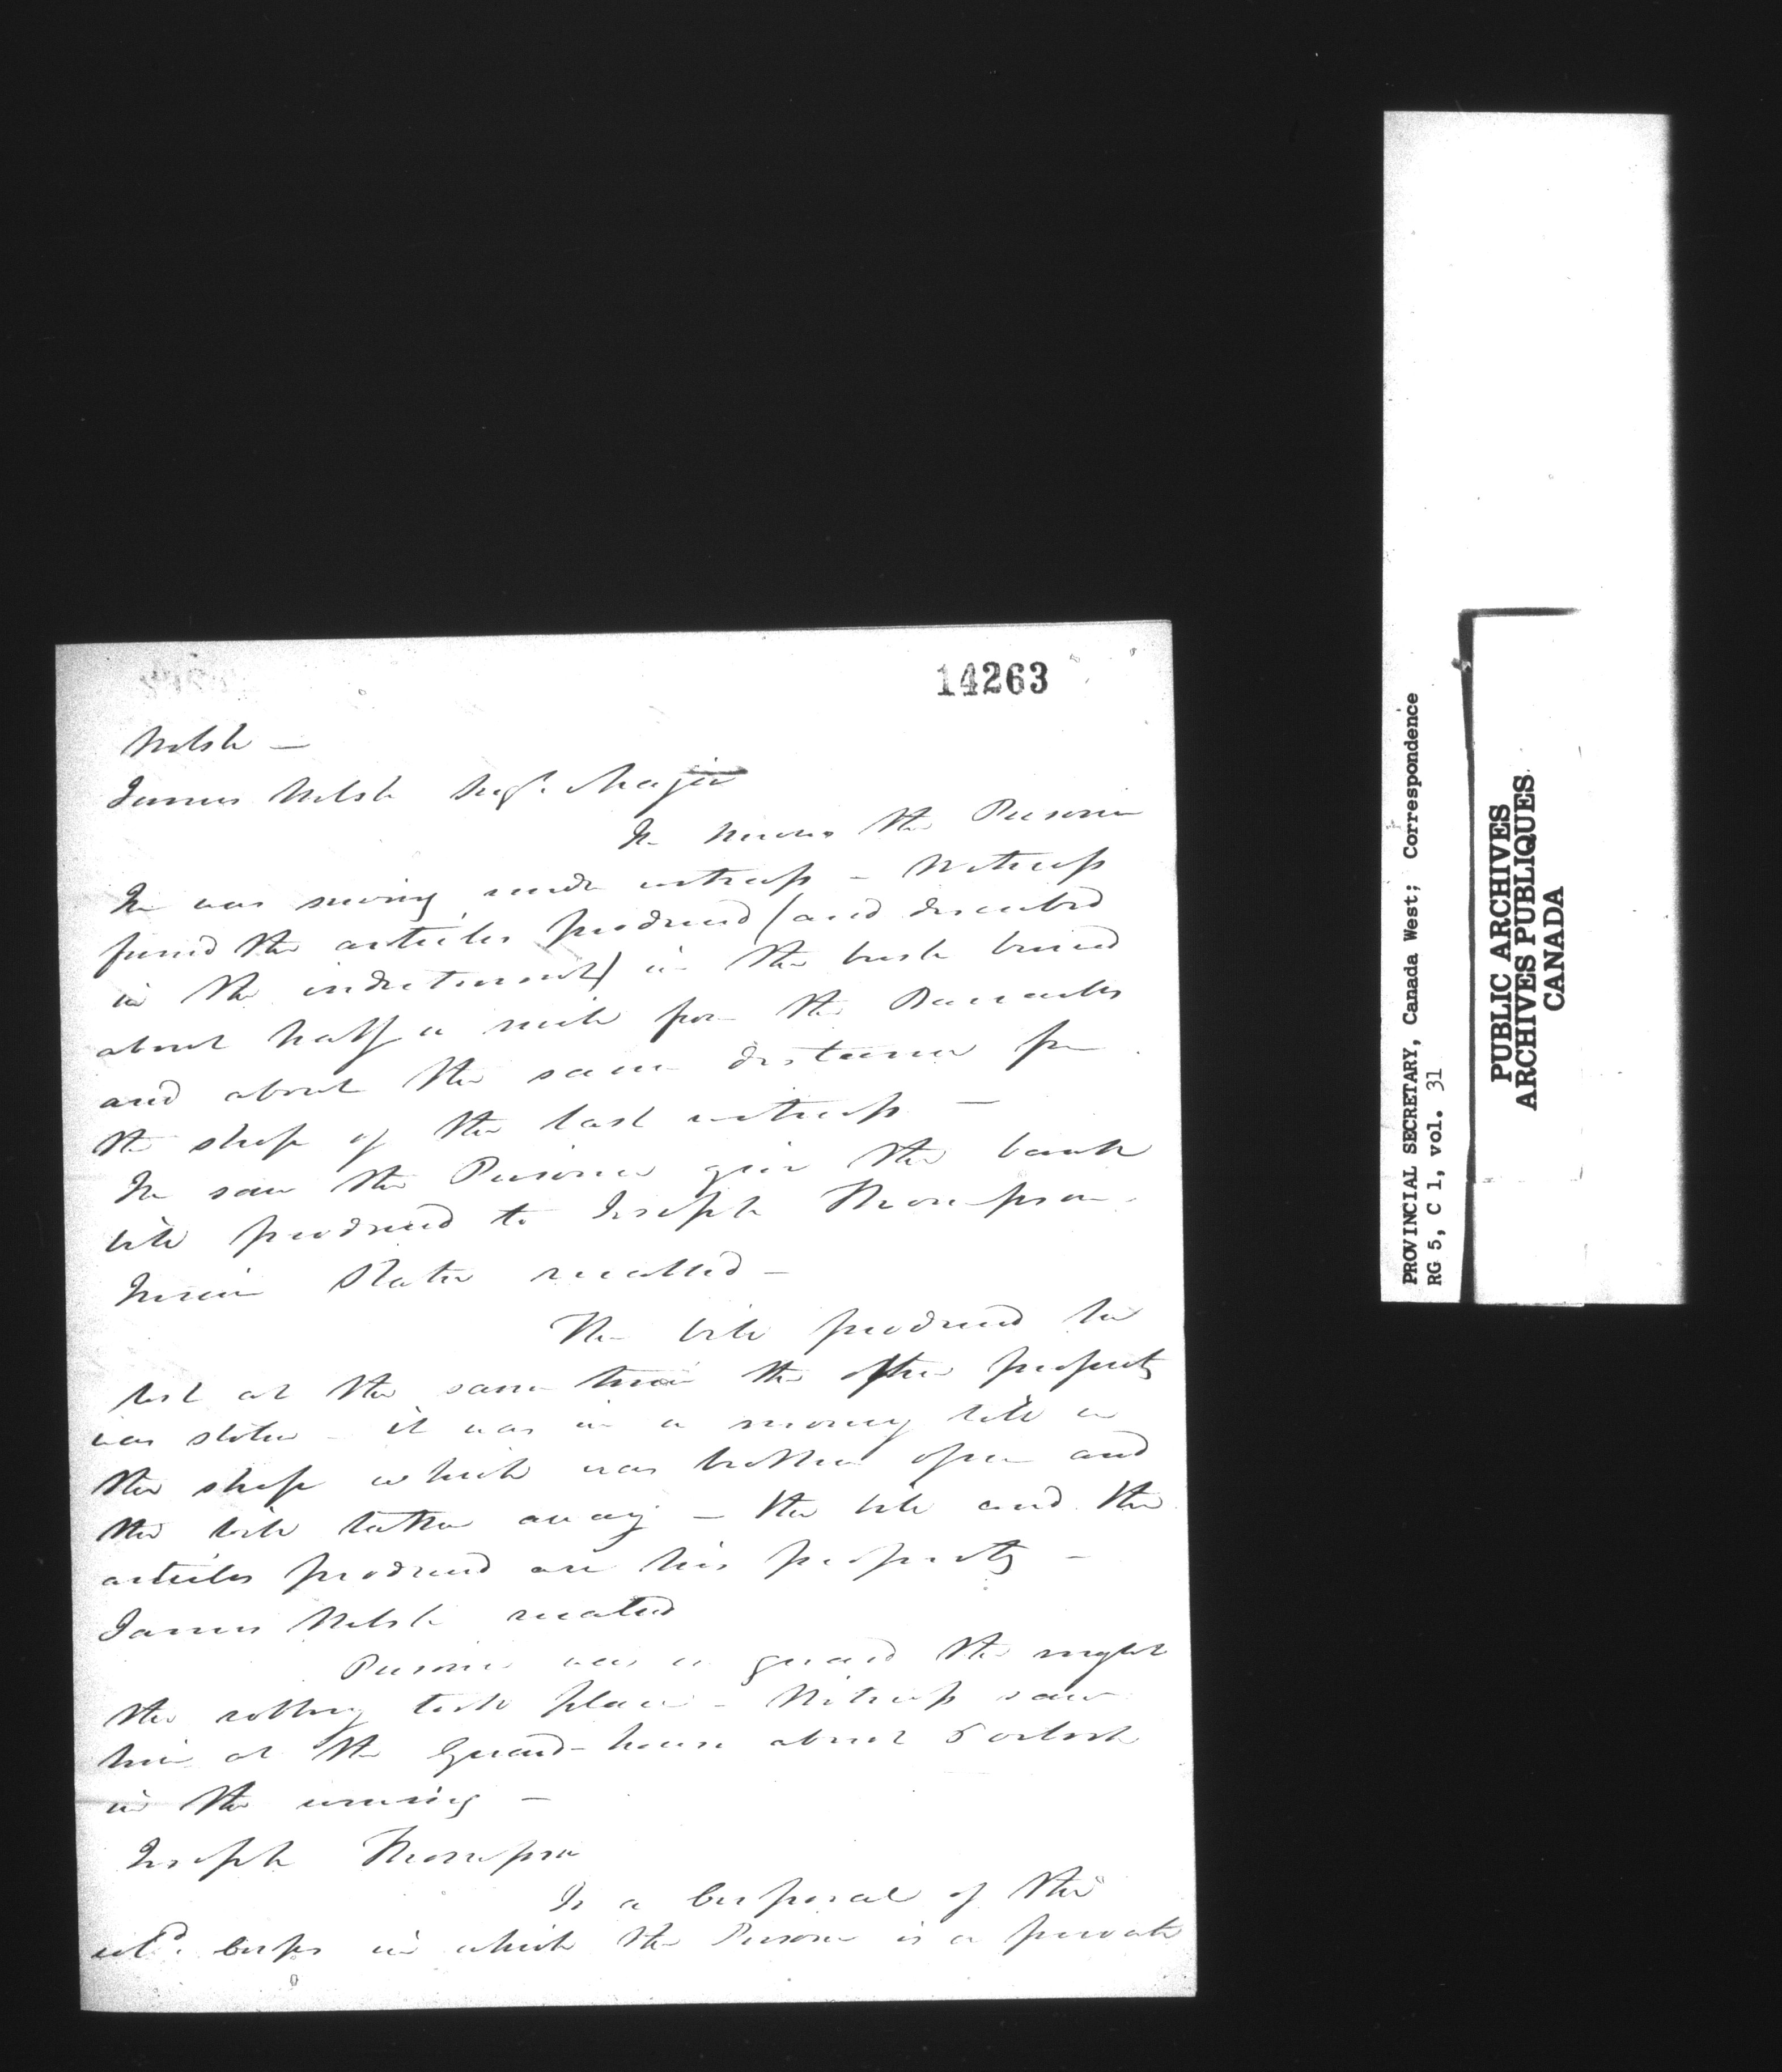 14263
Welsh —
James Welsh Sergt. Major
He knows the Prisoner
He was serving under witness – Witness
found the articles produced (and described
in the indictment) in the bush buried
about half a mile from the Barracks
and about the same distance from
the shop of the last witness —
He saw the Prisoner give the bank
bill produced to Joseph Thompson.
Slater recalled –
The bill produced he
lost at the same time the other property
was stolen – it was in a money till in
the shop which was broken open and
the bill taken away – the bill and the
articles produced are his property –
James Welsh recalled
Prisoner was on guard the night
the robbery took place – Witness saw
him at the Guard-house about 5 oclock
in the evening –
Joseph Thompson
Is a Corporal of the
Corps in which the Prisoner is a private
PROVINCIAL SECRETARY, Canada West; Correspondence
RG 5, C 1, vol. 31
PUBLIC ARCHIVES
ARCHIVES PUBLIQUES
CANADA